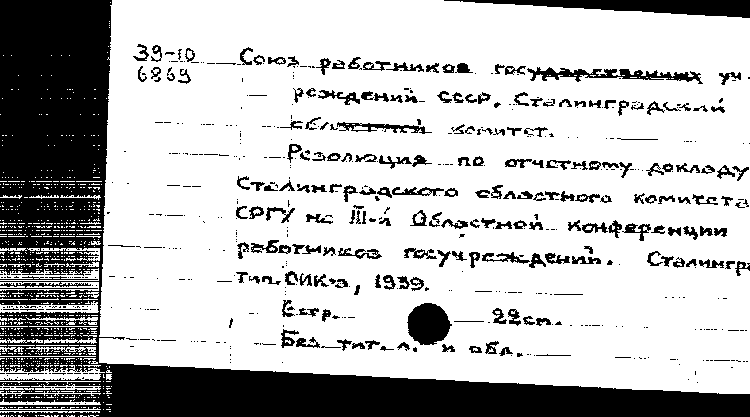 39-10 Союз работников государственных уч-
6869 реждений СССР. Сталинградский
областной комитет.
Резолюция по отчетному докладу
Сталинградского областного комитета
СРГУ на III-й Областной конференции
работников госучреждений. Сталингра
тип. ОИК-а, 1939.
6стр. 22см.
Без тит. л. и обл.